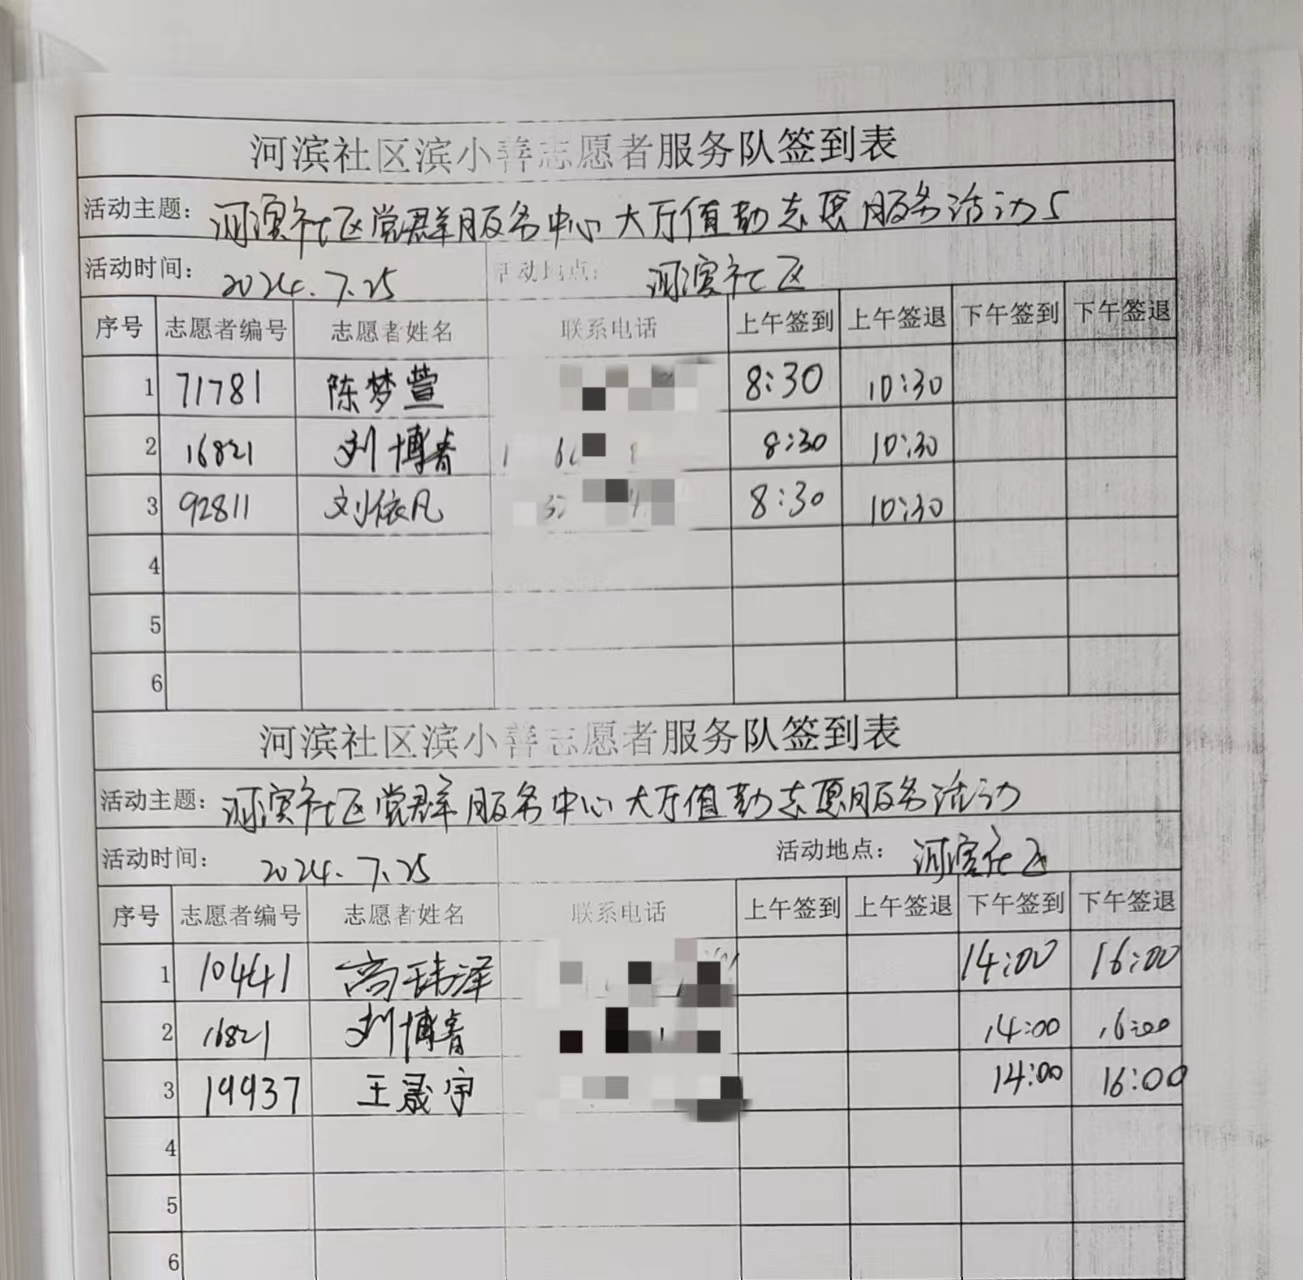 河滨社区滨小善志愿者服务队签到表
活动主题： 河滨社区党群服务中心大厅值勤志愿服务活动5
活动时间： 2024.7.25 活动地点： 河滨社区
序号 志愿者编号 志愿者姓名 联系电话 上午签到 上午签退 下午签到 下午签退
1 71781 陈梦萱 8:30 10:30
2 16821 刘博睿 8:30 10:30
3 92811 刘依凡 8:30 10:30
4
5
6
河滨社区滨小善志愿者服务队签到表
活动主题： 河滨社区党群服务中心大厅值勤志愿服务活动
活动时间： 2024.7.25 活动地点： 河滨社区
序号 志愿者编号 志愿者姓名 联系电话 上午签到 上午签退 下午签到 下午签退
1 10441 高玮泽 14:00 16:00
2 16821 刘博睿 14:00 16:00
3 19937 王晟宇 14:00 16:00
4
5
6